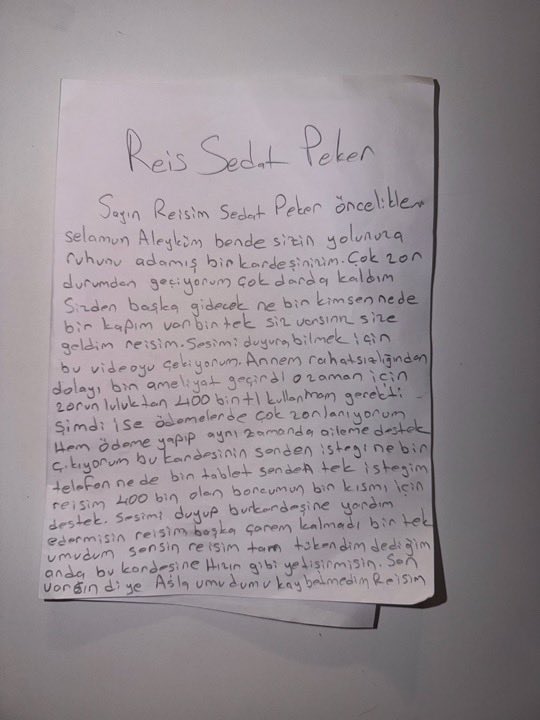 Reis Sedat Peker
Sayın Reisim Sedat Peker öncelikler
selamun Aleyküm bende sizin yolunuza
ruhunu adamış bir kardeşinizim. Çok zor
durumdan geçiyorum çok darda kaldım
Sizden başka gidecek ne bir kimsem nede
bir kapım var bir tek siz varsınız size
geldim reisim. Sesimi duyurabilmek için
bu videoyu çekiyorum. Annem rahatsızlığından
dolayı bir ameliyat geçirdi o zaman için
zorunluluktan 400 bin tl kullanmam gerekti
Şimdi ise ödemelerde çok zorlanıyorum
Hem ödeme yapıp aynı zamanda aileme destek
çıkıyorum bu kardeşinin senden isteği ne bir
telefon ne de bir tablet senden tek isteğim
reisim 400 bin olan borcumun bir kısmı için
destek. Sesimi duyup bu kardeşine yardım
edermisin reisim başka çarem kalmadı bir tek
umudum sensin reisim tam tükendim dediğim
anda bu kardeşine Hızır gibi yetişirmisin. Sen
varsın diye Asla umudumu kaybetmedim Reisim